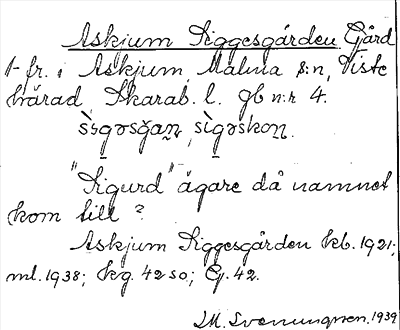 Askjum Siggesgården Gård
1 fr. i Askjum, Malma s:n, Viste
härad, Skarab. l. gb n:r 4.
sìgəsgan̥, sìgəskon̥.
"Sigurd" ägare då namnet
kom till?
Askjum Siggesgården kb. 1921;
ml. 1938; kg. 42 so; Gj. 42.
M. Svenungsson. 1939